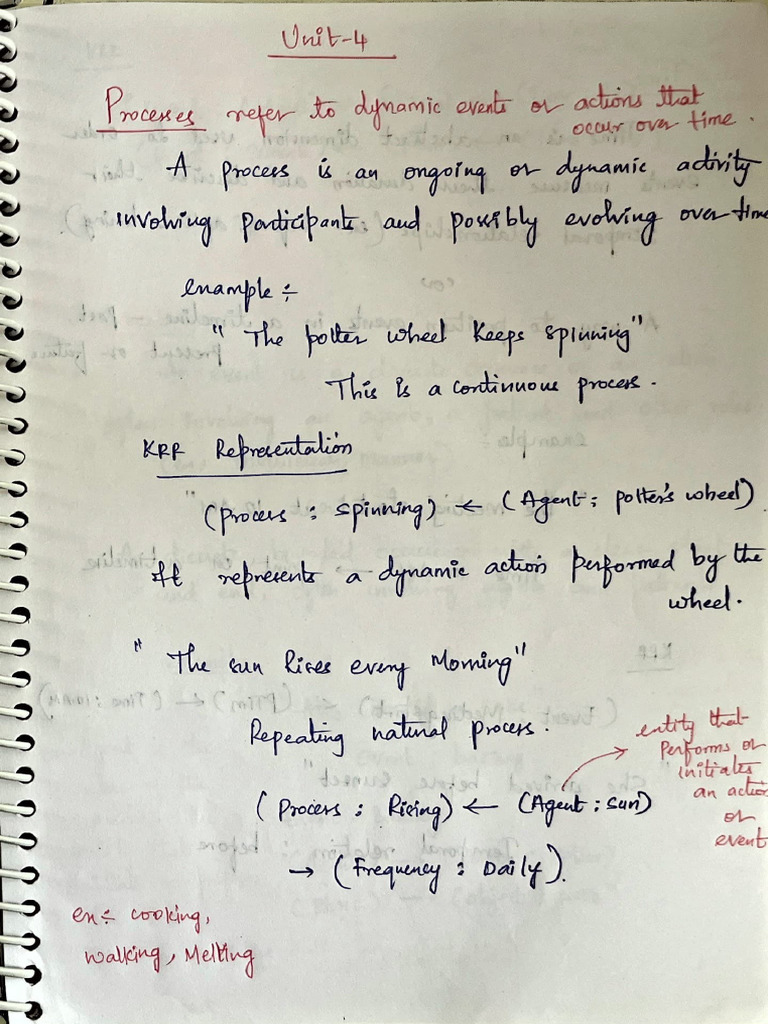 Unit-4
Processes refer to dynamic events or actions that
occur over time.
A process is an ongoing or dynamic activity
involving participants and possibly evolving over time
example :-
"The potter wheel keeps spinning"
This is a continuous process.
KRR Representation
(Process : spinning) ← (Agent : potter's wheel)
It represents a dynamic action performed by the
wheel.
"The sun rises every morning"
Repeating natural process.
(Process : Rising) ← (Agent : sun)
→ (Frequency : Daily).
entity that
performs or
initiates
an action
or
event
ex :- cooking,
walking, Melting